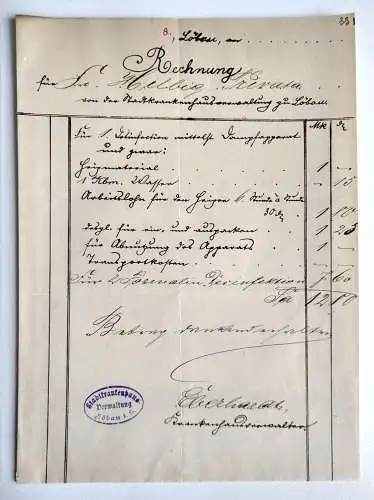 33
8., Löbau, am
Rechnung
für Fr. Helbig, Privata.
von der Stadtkrankenhausverwaltung zu Löbau
Mk
Für 1 Desinfection mittelst Dampfapparat
und zwar:
Heizmaterial 1 —
1 Kbm. Wasser — 15
Arbeitslohn für den Heizer 6 Stunde a Stunde
30 1 80
desgl. für ein- und auspacken 1 25
für Abnutzung des Apparats 1 —
Transportkosten
Für 2 Formalin Desinfektion 7 60
Sa 12 80
Betrag dankend erhalten
Stadtkrankenhaus
Verwaltung
Löbau i. S.
Eberhardt,
Krankenhausverwalter